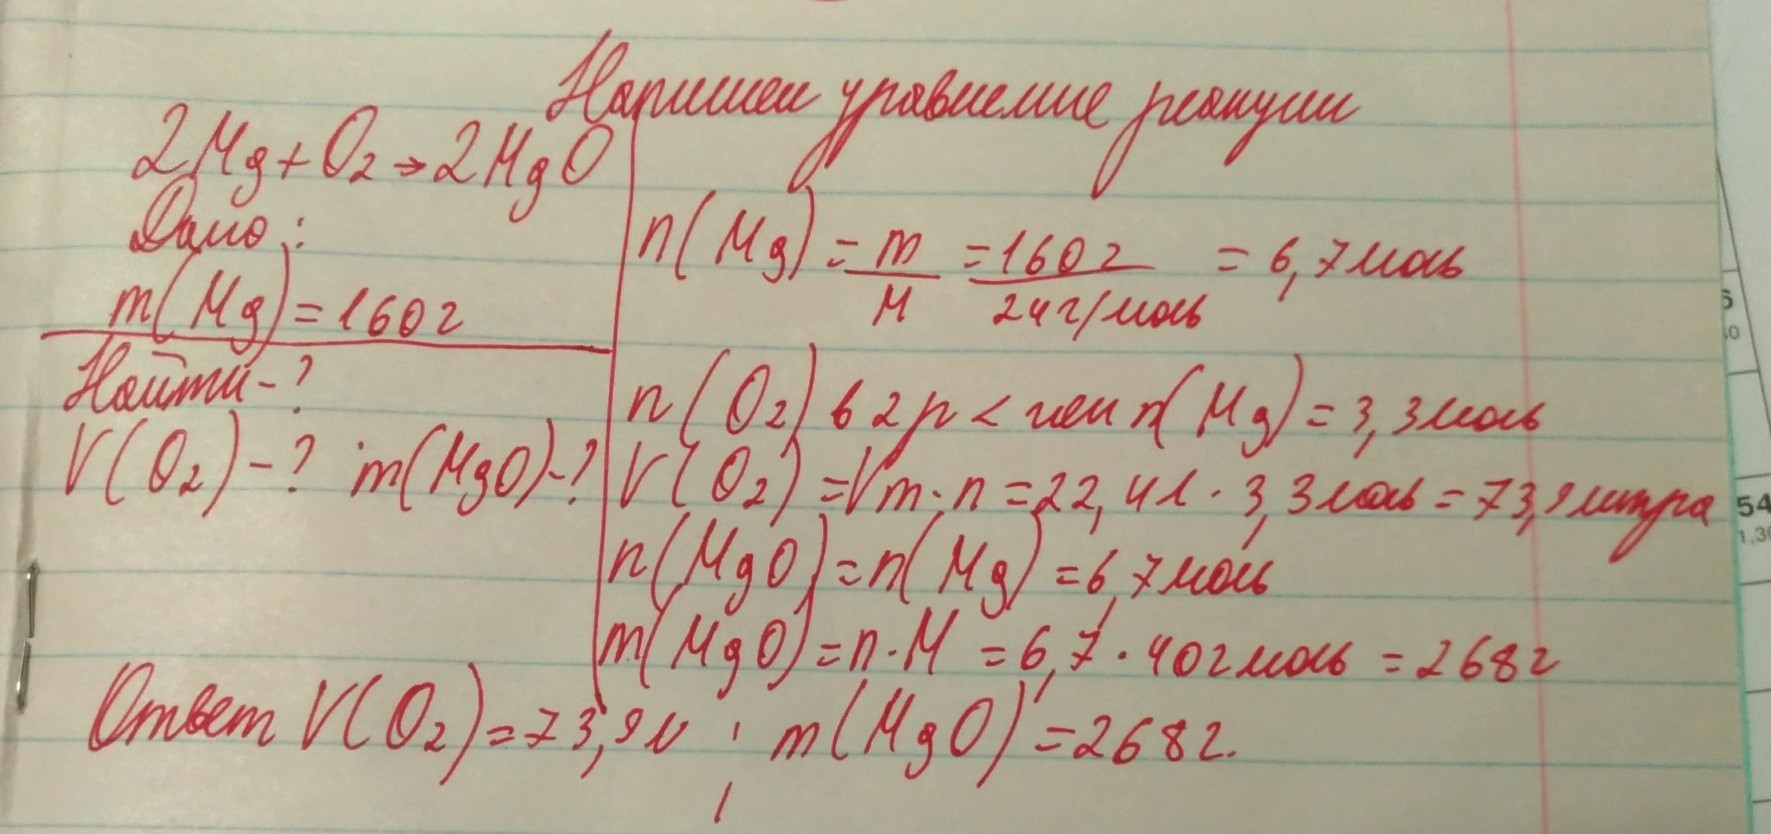 Напишем уравнение реакции
2Mg+O₂→2MgO
Дано:
m(Mg)=160г
Найти-?
V(O₂)-? m(MgO)-?
n(Mg)=m/M=160г/24г/моль=6,7моль
n(O₂) в 2р < чем n(Mg)=3,3моль
V(O₂)=Vm·n=22,4л·3,3моль=73,9литра
n(MgO)=n(Mg)=6,7моль
m(MgO)=n·M=6,7·40гмоль=268г
Ответ V(O₂)=73,9л; m(MgO)=268г.
54